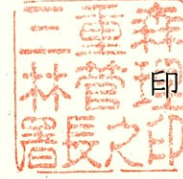 三重森
林管理
署長之印
印